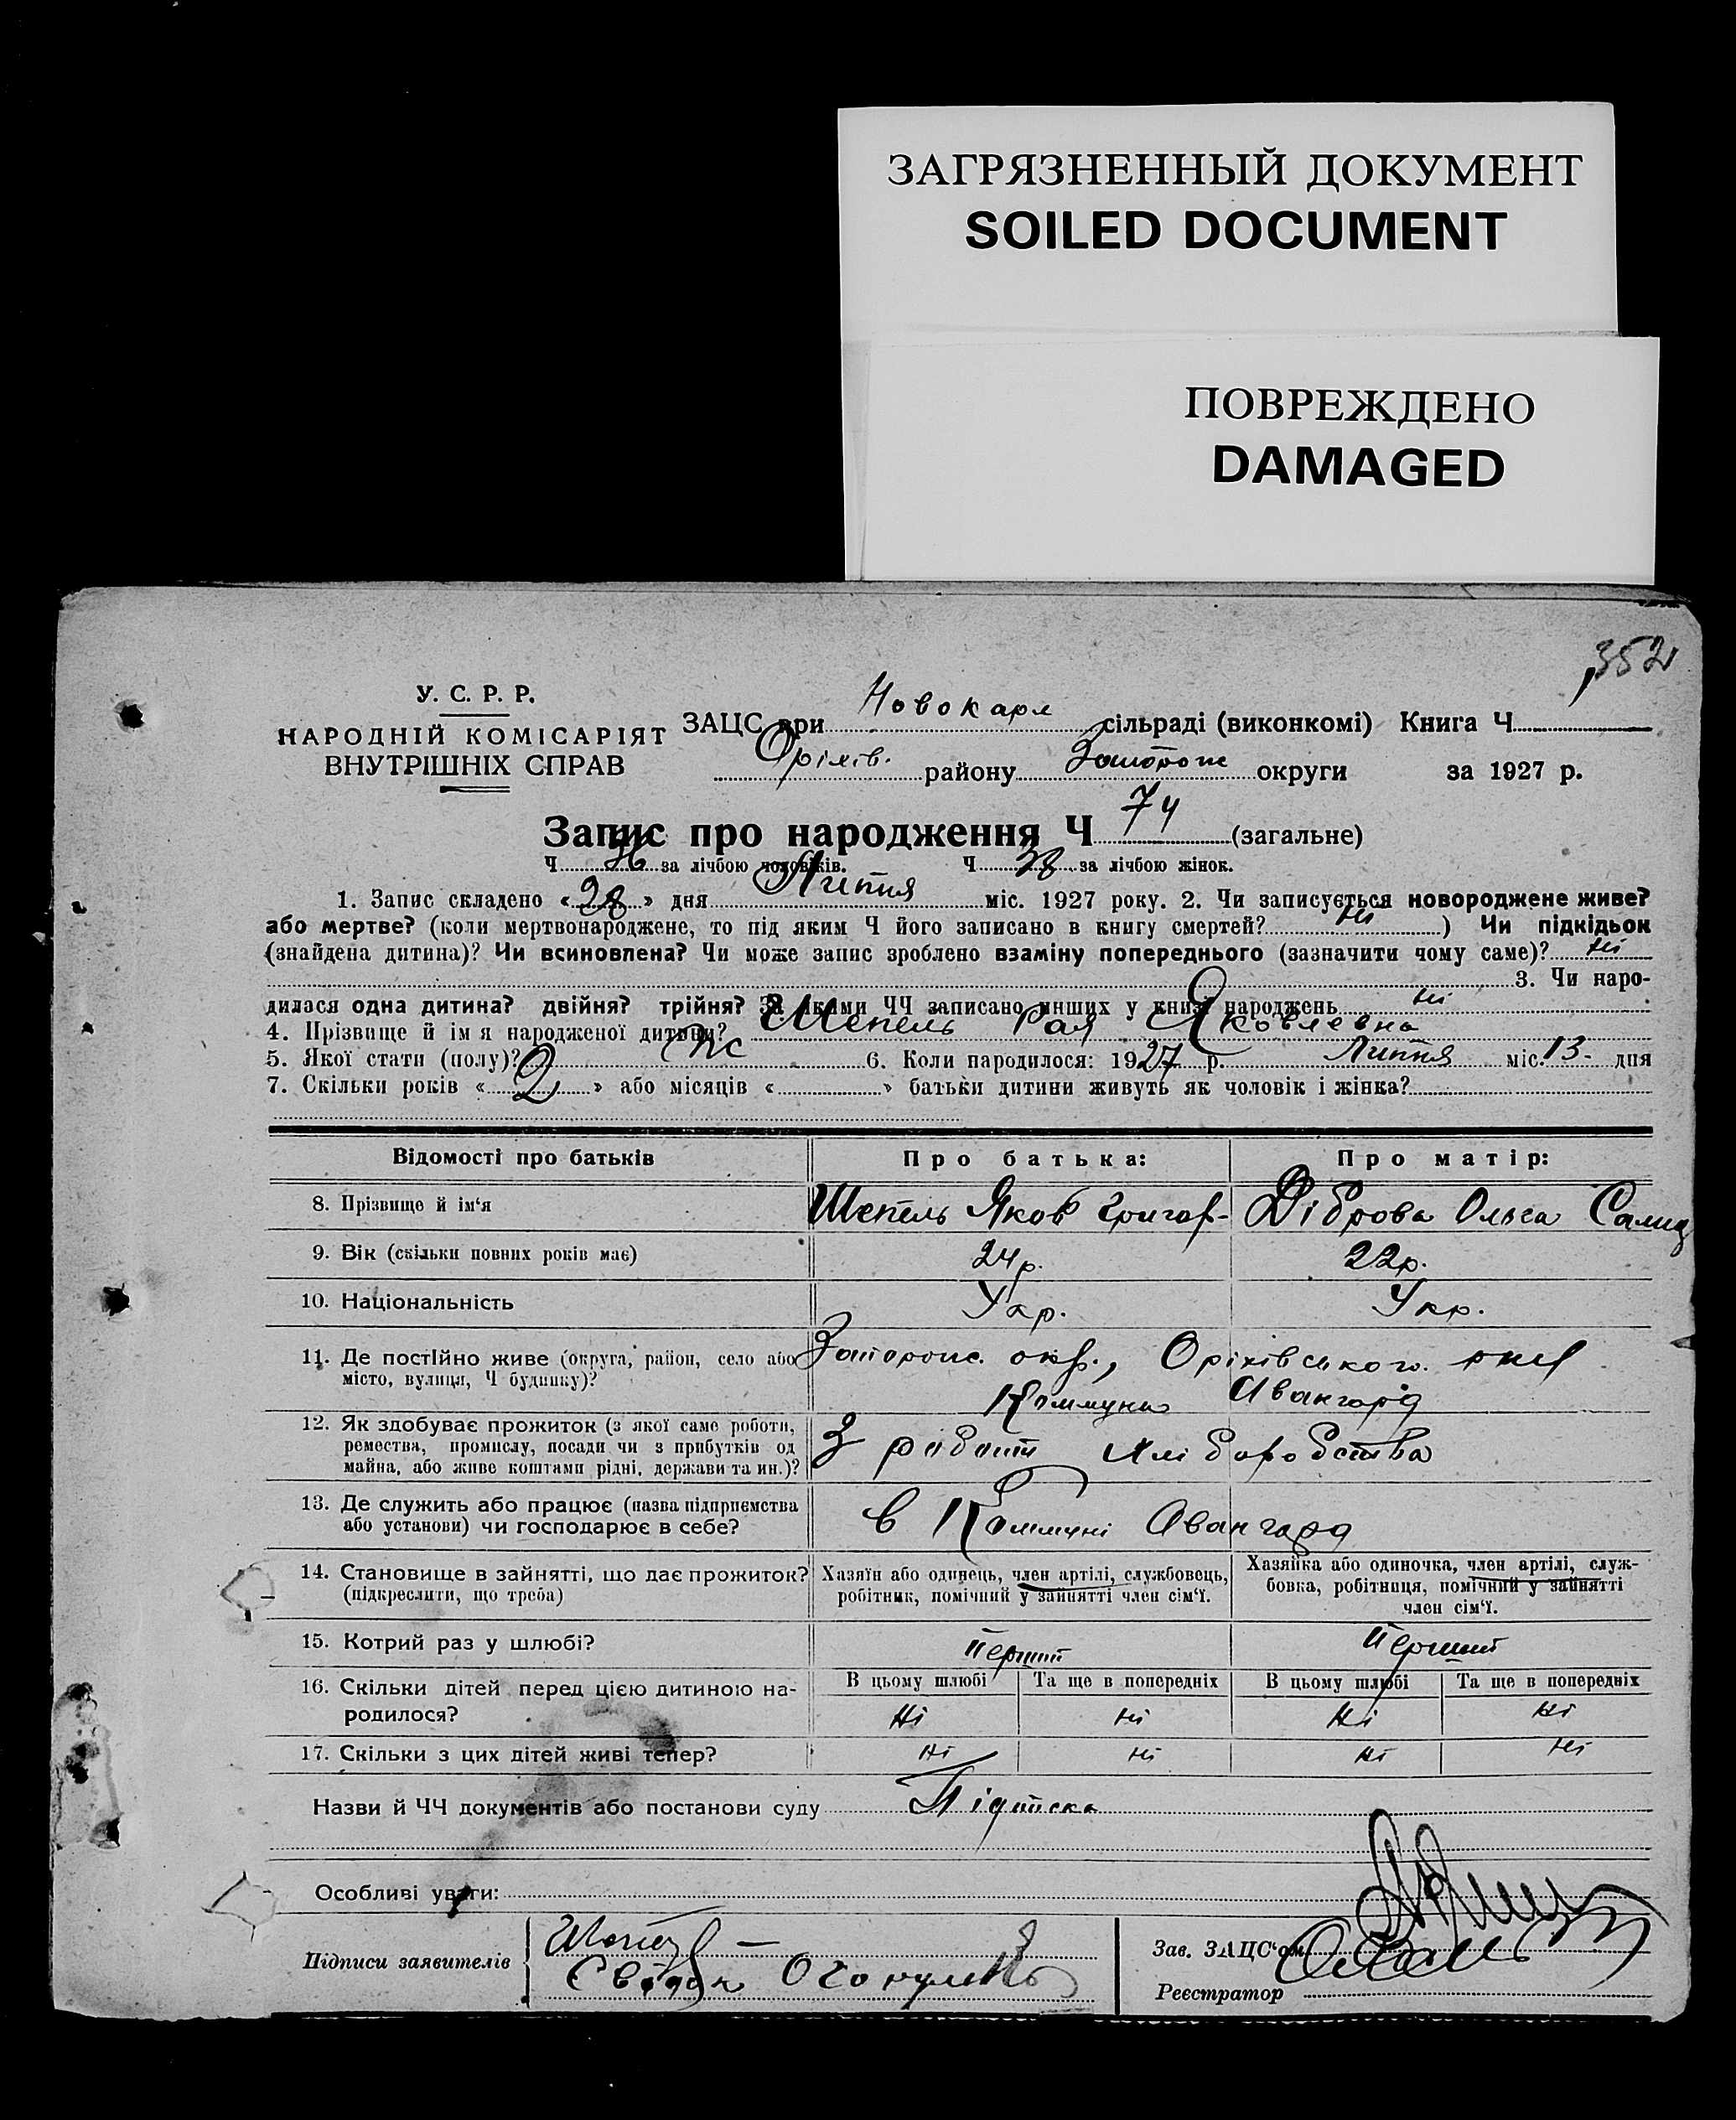 ЗАГРЯЗНЕННЫЙ ДОКУМЕНТ
SOILED DOCUMENT
ПОВРЕЖДЕНО
DAMAGED
352
У. С. Р. Р.
НАРОДНІЙ КОМІСАРІЯТ
ВНУТРІШНІХ СПРАВ
ЗАЦС при Новокарл сільраді (виконкомі) Книга Ч
Оріхів. району Запорож округи за 1927 р.
Запис про народження Ч 74 (загальне)
Ч 36 за лічбою чоловіків. Ч 38 за лічбою жінок.
1. Запис складено «28» дня Липня міс. 1927 року. 2. Чи записується новороджене живе?
або мертве? (коли мертвонароджене, то під яким Ч його записано в книгу смертей? Ні ) Чи підкідьок
(знайдена дитина)? Чи всиновлена? Чи може запис зроблено взаміну попереднього (зазначити чому саме)? Ні
3. Чи наро-
дилася одна дитина? двійня? трійня? За якими ЧЧ записано инших у книзі народжень Ні
4. Прізвище й ім я народженої дитини? Шепель Рая Яковлевна
5. Якої стати (полу)? Ж 6. Коли народилося: 1927 р. Липня міс. 13 дня
7. Скільки років «2» або місяців « » батьки дитини живуть як чоловік і жінка?
Відомості про батьків Про батька: Про матір:
8. Прізвище й ім'я Шепель Яков Григор- Діброва Ольга
9. Вік (скільки повних років має) 24 р. 22 р.
10. Національність Укр. Укр.
11. Де постІйно живе (округа, район, село або Запорож. окр., Оріхівського
місто, вулиця, Ч будинку)? Коммуна Авангард
12. Як здобуває прожиток (з якої саме роботи,
ремества, промислу, посади чи з прибутків од З работи хліборобства
майна, або живе коштами рідні, держави та ин.)?
13. Де служить або працює (назва підприємства
або установи) чи господарює в себе? В Коммуні Авангард
14. Становище в зайнятті, що дає прожиток?
(підкреслити, що треба)
Хазяїн або одинець, член артілі, службовець,
робітник, помічний у зайнятті член сім'ї.
Хазяйка або одиночка, член артілі, служ-
бовка, робітниця, помічний у зайнятті
член сім'ї.
15. Котрий раз у шлюбі? Перший Перший
16. Скільки дітей перед цією дитиною на-
родилося?
В цьому шлюбі Та ще в попередніх В цьому шлюбі Та ще в попередніх
Ні Ні Ні Ні
17. Скільки з цих дітей живі тепер? Ні Ні Ні Ні
Назви й ЧЧ документів або постанови суду Підписка
Особливі уваги:
Підписи заявителів
Свідок
Зав. ЗАЦС'ом
Реєстратор